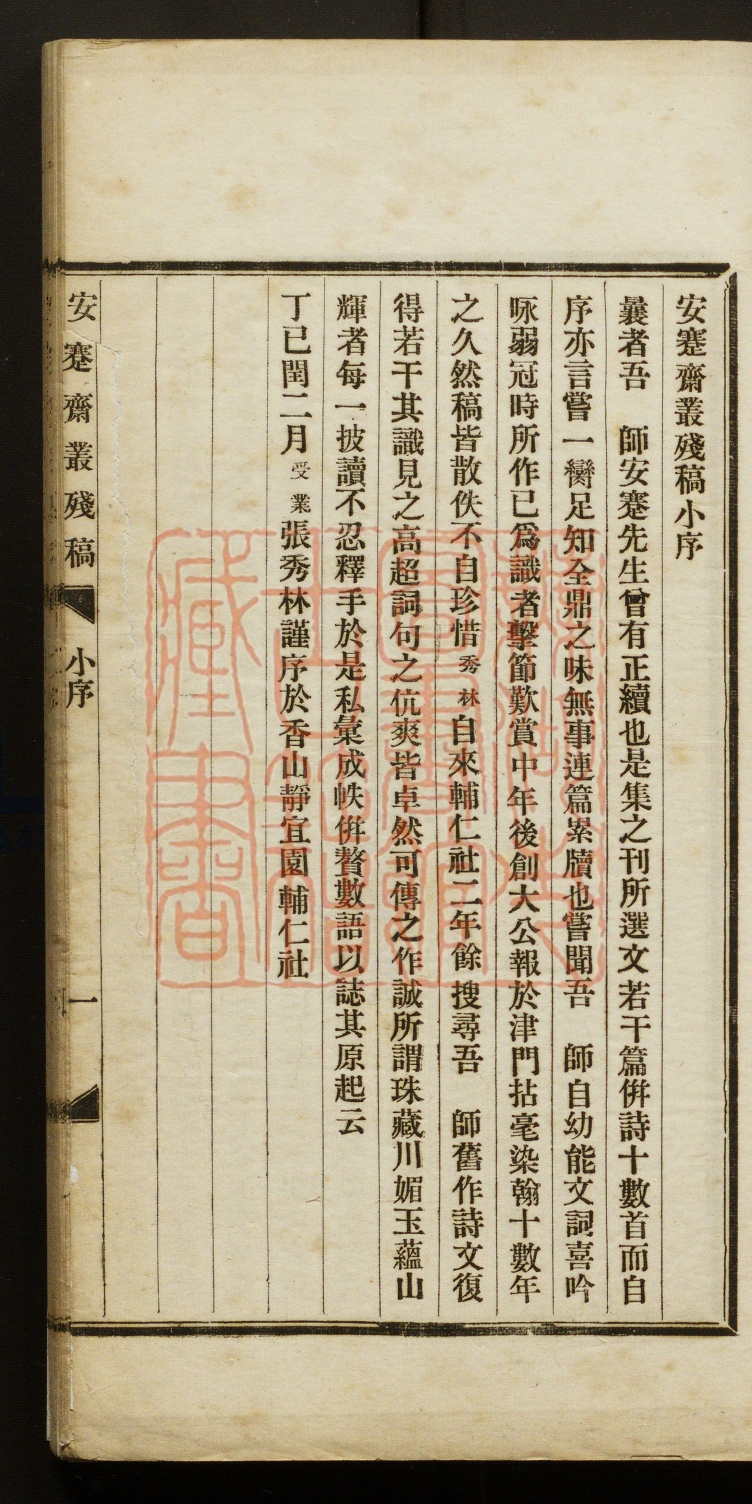 安蹇齋叢殘稿小序
曩者吾　師安蹇先生曾有正續也是集之刊所選文若干篇倂詩十數首而自
序亦言嘗一臠足知全鼎之味無事連篇累牘也嘗聞吾　師自幼能文詞喜吟
咏弱冠時所作已爲識者擊節歎賞中年後創大公報於津門拈毫染翰十數年
之久然稿皆散佚不自珍惜秀林自來輔仁社二年餘搜尋吾　師舊作詩文復
得若干其識見之高超詞句之伉爽皆卓然可傳之作誠所謂珠藏川媚玉蘊山
輝者每一披讀不忍釋手於是私彙成帙倂贅數語以誌其原起云
丁巳閏二月受業張秀林謹序於香山靜宜園輔仁社
安蹇齋叢殘稿　小序　一
藏書